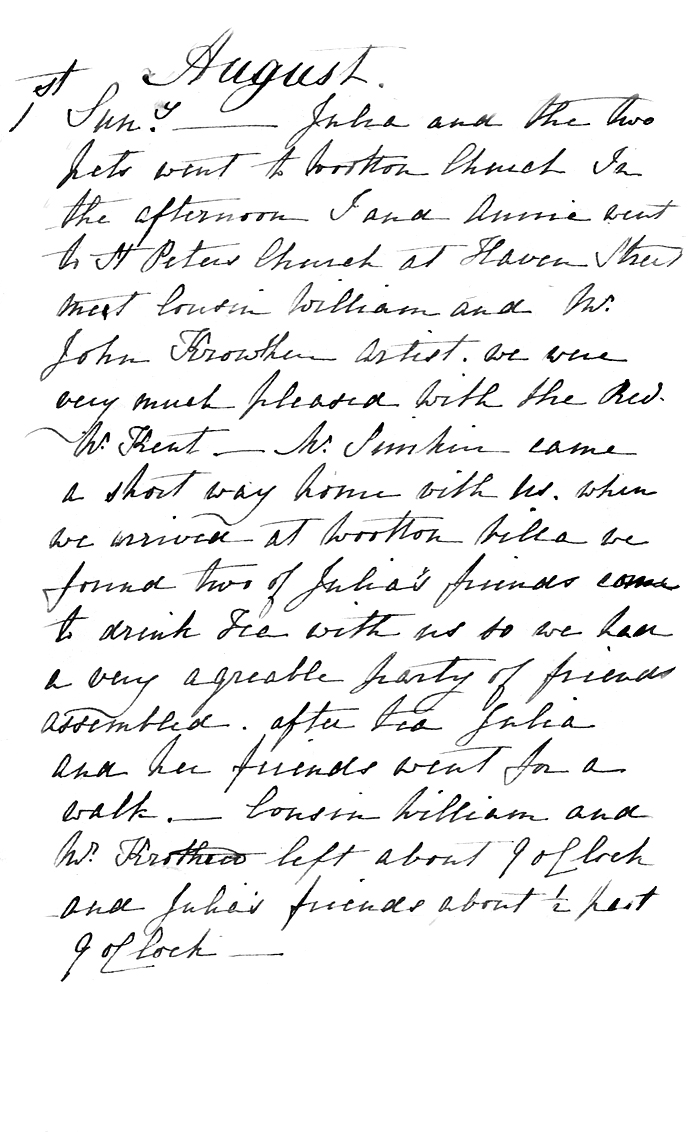 August.
1st Sun.y — Julia and the two
pets went to Wootton Church In
the afternoon I and Annie went
to St Peters Church at Haven Street
meet Cousin William and Mr.
John Krowther Artist. we were
very much pleased with the Revd.
Mr. Kent — Mr. Simkin came
a short way home with us. when
we arrived at Wootton Villa we
found two of Julia's friends come
to drink Tea with us so we had
a very agreable party of friends
assembled. after tea Julia
and her friends went for a
walk. — Cousin William and
Mr. left about 9 oClock
and Julia's friends about ½ past
9 oClock —